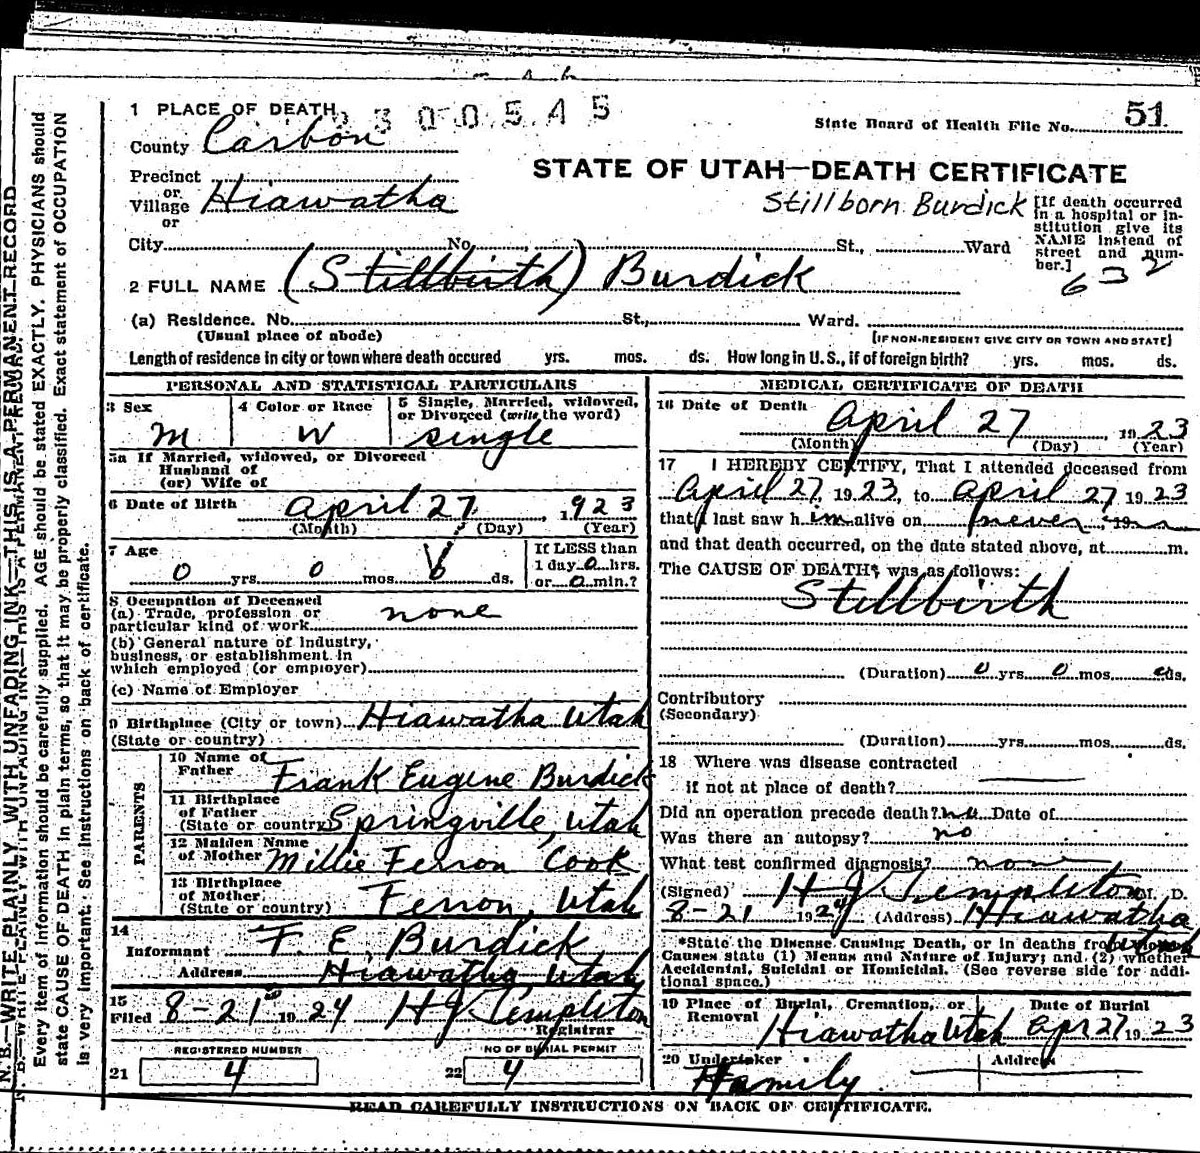 1 PLACE OF DEATH
2300545
State Board of Health File No. 51
County Carbon
STATE OF UTAH—DEATH CERTIFICATE
Precinct
or
Village Hiawatha
or
Stillborn Burdick
[If death occurred
in a hospital or in-
stitution give its
NAME instead of
street and num-
ber.]
632
City No. St., Ward
2 FULL NAME (Stillbirth) Burdick
(a) Residence. No. St., Ward.
(Usual place of abode)
[IF NON-RESIDENT GIVE CITY OR TOWN AND STATE]
Length of residence in city or town where death occured yrs. mos. ds. How long in U. S., if of foreign birth? yrs. mos. ds.
PERSONAL AND STATISTICAL PARTICULARS
3 Sex
M
4 Color or Race
W
5 Single, Married, widowed,
or Divorced (write the word)
single
5a If Married, widowed, or Divorced
Husband of
(or) Wife of
6 Date of Birth April 27, 1923
(Month) (Day) (Year)
7 Age
0 yrs. 0 mos. 0 ds.
If LESS than
1 day 0 hrs.
or 0 min.?
8 Occupation of Deceased
(a) Trade, profession or
particular kind of work none
(b) General nature of industry,
business, or establishment in
which employed (or employer)
(c) Name of Employer
9 Birthplace (City or town) Hiawatha Utah
(State or country)
PARENTS
10 Name of
Father Frank Eugene Burdick
11 Birthplace
of Father
(State or country) Springville, Utah
12 Maiden Name
of Mother Millie Ferron Cook
13 Birthplace
of Mother
(State or country) Ferron, Utah
14
Informant F. E. Burdick
Address Hiawatha, Utah
15
Filed 8-21 1924 H J Templeton
Registrar
REGISTERED NUMBER
21 4
NO OF BURIAL PERMIT
22 4
MEDICAL CERTIFICATE OF DEATH
16 Date of Death April 27, 1923
(Month) (Day) (Year)
17 I HEREBY CERTIFY, That I attended deceased from
April 27, 1923, to April 27 1923
that I last saw him alive on never, 19
and that death occurred, on the date stated above, at m.
The CAUSE OF DEATH* was as follows:
Stillbirth
(Duration) 0 yrs 0 mos 0 ds.
Contributory
(Secondary)
(Duration) yrs. mos. ds.
18 Where was disease contracted
if not at place of death?
Did an operation precede death? no Date of
Was there an autopsy? no
What test confirmed diagnosis? none
(Signed) H J Templeton M. D.
8-21 1924 (Address) Hiawatha
Utah
*State the Disease Causing Death, or in deaths from Violent
Causes state (1) Means and Nature of Injury; and (2) whether
Accidental, Suicidal or Homicidal. (See reverse side for addi-
tional space.)
19 Place of Burial, Cremation, or
Removal Hiawatha Utah
Date of Burial
Apr 27 1923
20 Undertaker
Family
Address
READ CAREFULLY INSTRUCTIONS ON BACK OF CERTIFICATE.
N. B.—WRITE PLAINLY WITH UNFADING INK—THIS IS A PERMANENT RECORD
Every item of information should be carefully supplied. AGE should be stated EXACTLY. PHYSICIANS should
state CAUSE OF DEATH in plain terms, so that it may be properly classified. Exact statement of OCCUPATION
is very important. See instructions on back of certificate.